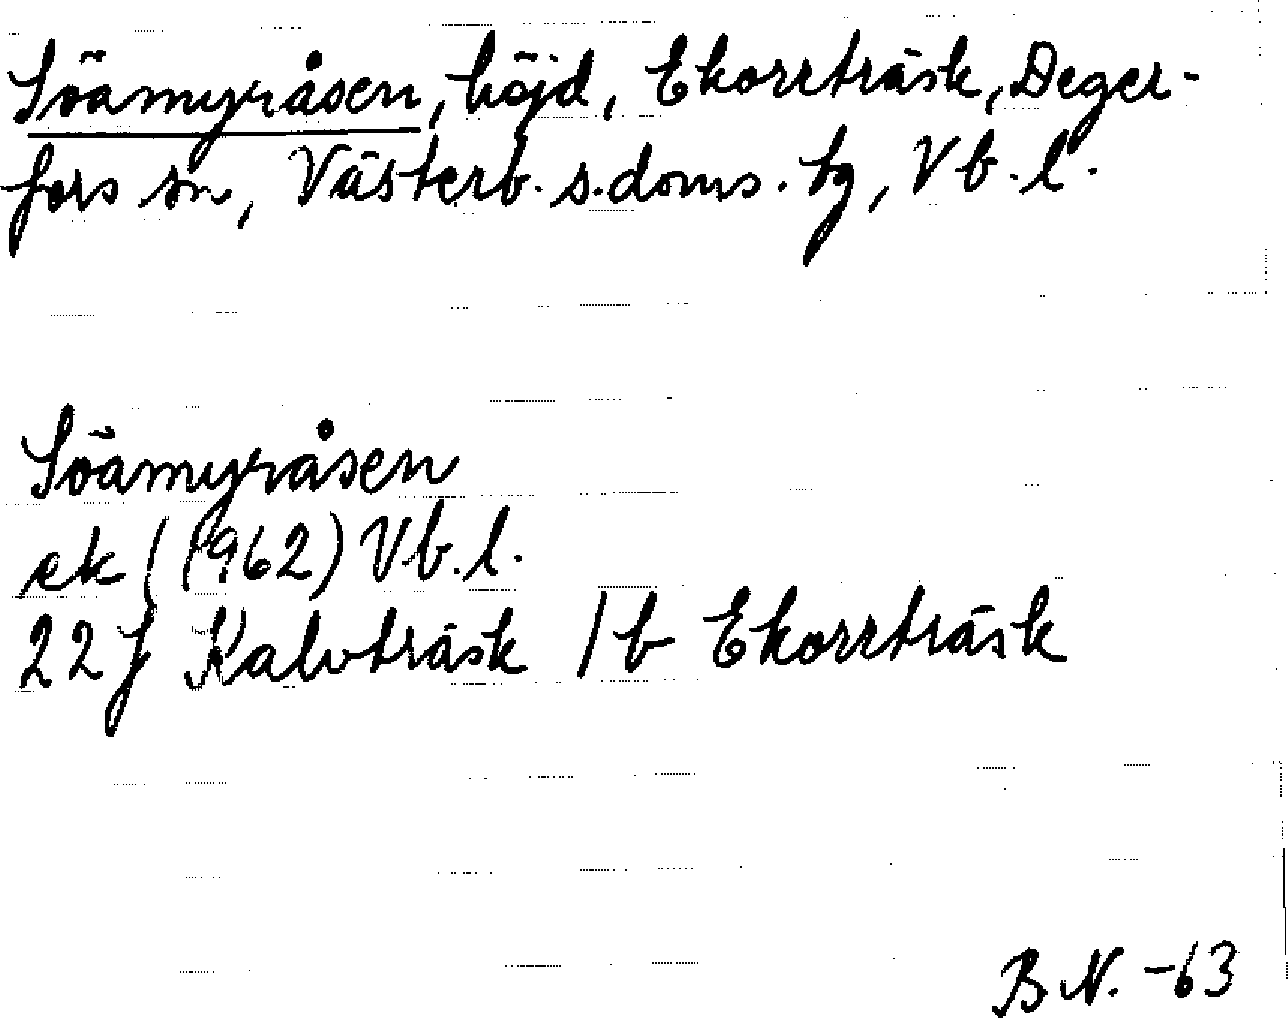 Söåmyråsen, höjd, Ekorrträsk, Deger-
fors sn, Västerb. s. doms. tg, Vb. l.
Söåmyråsen
ek (1962) Vb. l.
22J Kalvträsk /b Ekorrträsk
B.N. -63